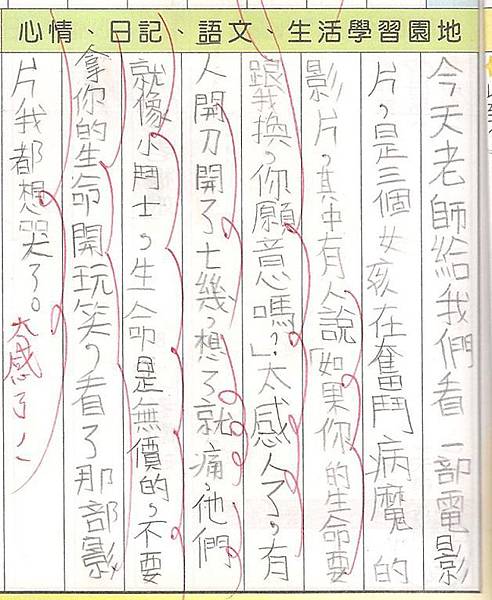 心情、日記、語文、生活學習園地
今天老師給我們看一部電影
片，是三個女孩在奮鬥病魔的
影片，其中有人說「如果你的生命要
跟我換，你願意嗎？」太感人了，有
人開刀開了七幾，想了就痛，他們
就像小鬥士，生命是無價的，不要
拿你的生命開玩笑，看了那部影
片我都想哭了。
太感了！